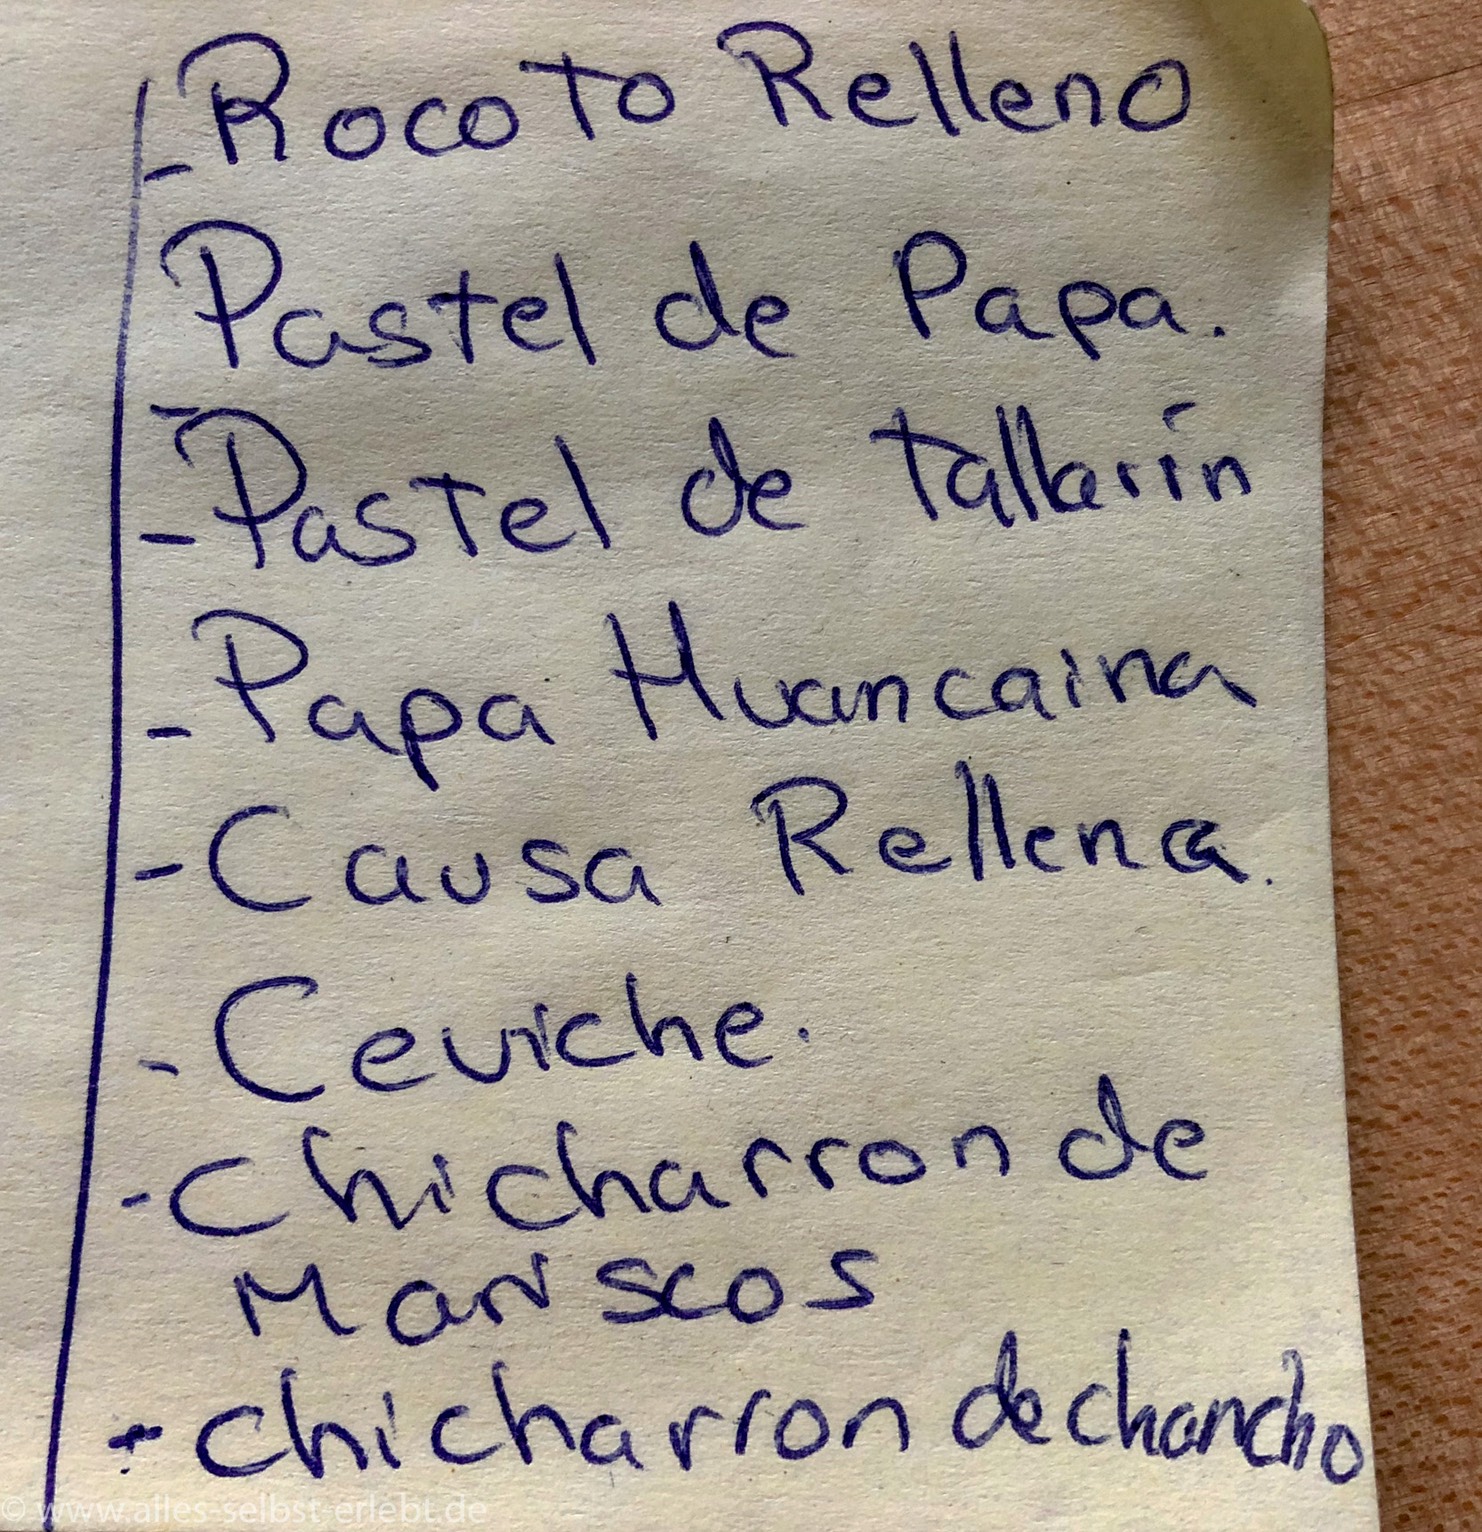 - Rocoto Relleno
Pastel de Papa.
- Pastel de tallarin
- Papa Huancaina
- Causa Rellena.
- Ceviche.
- Chicharron de
Mariscos
- Chicharron de chancho
© www.alles-selbst-erlebt.de